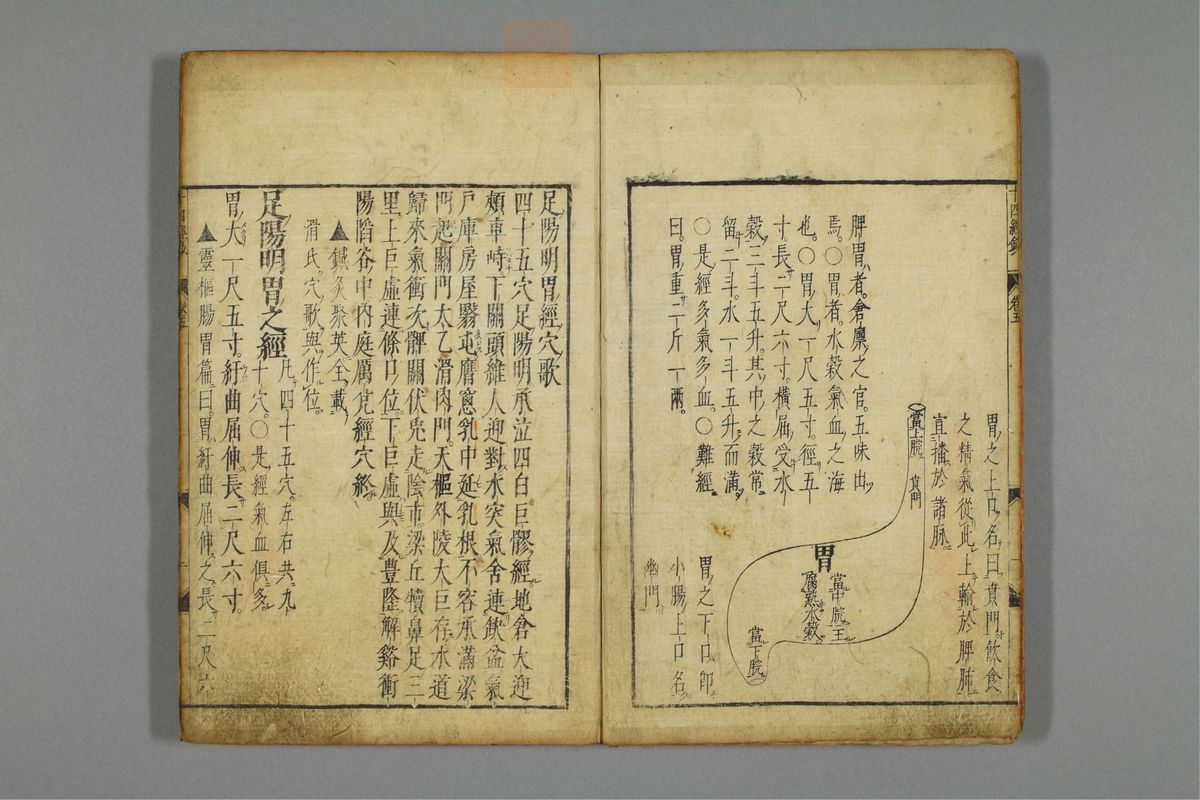 十四經鈔 卷五
脾胃者倉廩之官五味出
焉○胃者水穀氣血之海
也○胃大一尺五寸徑五
寸長二尺六寸橫屈受水
穀三斗五升其中之穀常
留二斗水一斗五升而滿
○是經多氣多血○難經
曰胃重二斤一兩
胃之上口名曰賁門飲食
之精氣從此上輸於脾肺
直播於諸脉
當上脘
賁門
胃
當中脘主
腐熟水穀
當下脘
胃之下口即
小腸上口名
幽門
足陽明胃經穴歌
四十五穴足陽明承泣四白巨髎經地倉大迎
頰車峙下關頭維人迎對水突氣舍連缺盆氣
戶庫房屋翳屯膺窓乳中延乳根不容承滿梁
門起關門太乙滑肉門天樞外陵大巨存水道
歸來氣衝次髀關伏兎走陰市梁丘犢鼻足三
里上巨虛連條口位下巨虛與及豐隆解谿衝
陽陷谷中內庭厲兌經穴終
▲鍼灸聚英全載
滑氏穴歌與作位
足陽明胃之經
凡四十五穴左右共九
十穴○是經氣血俱多
胃大一尺五寸紆曲屈伸長二尺六寸
▲靈樞腸胃篇曰胃紆曲屈伸之長二尺六